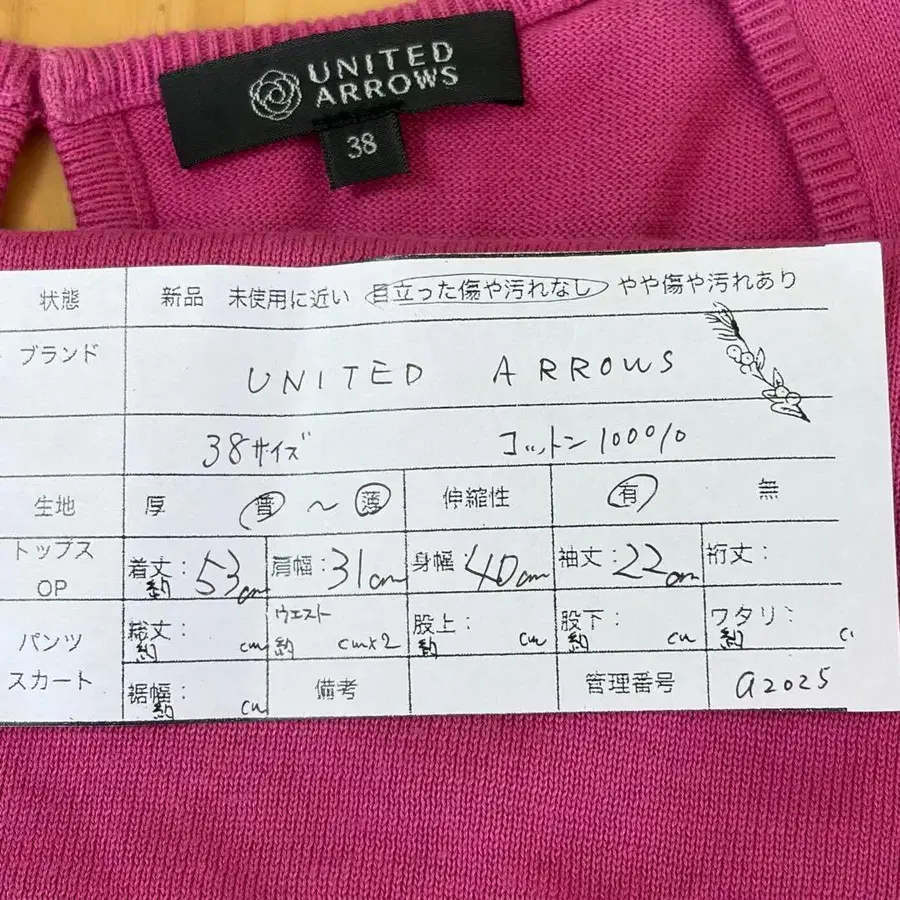 UNITED
ARROWS
38
状態 新品 未使用に近い 目立った傷や汚れなし やや傷や汚れあり
ブランド UNITED ARROWS
38サイズ コットン100%
生地 厚 普 ~ 薄 伸縮性 有 無
トップス
OP
着丈: 約 53cm 肩幅: 31cm 身幅: 40cm 袖丈: 22cm 裄丈:
パンツ
スカート
総丈: 約 cm ウエスト 約 cm×2 股上: 約 cm 股下: 約 cm ワタリ: 約 c
裾幅: 約 cm 備考 管理番号 a2025